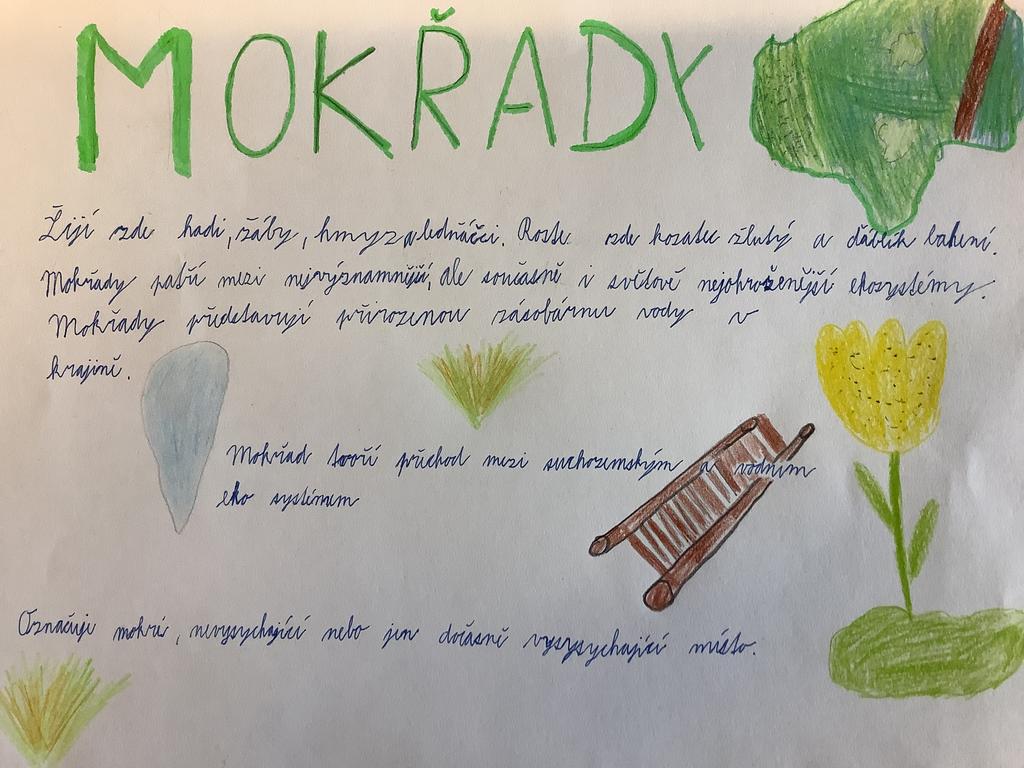 MOKŘADY
Žijí zde hadi, žáby, hmyz a plednáčci. Roste zde kosatec žlutý a ďáblík bahení.
Mokřady patří mezi nejvýznamnější, ale současně i světově nejohroženější ekosystémy.
Mokřady představují přirozenou zásobárnu vody v
krajině.
Mokřad tvoří přechod mezi suchozemským a vodním
eko systémem
Označuje mokré, nevysychající nebo jen dočasně vysysychající místo.